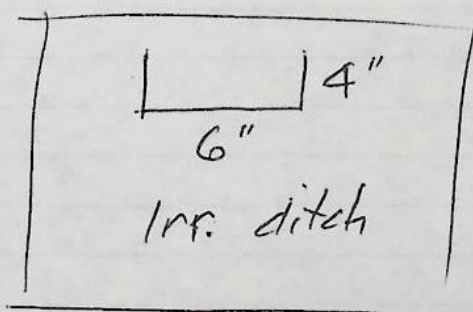 4"
6"
Irr. ditch